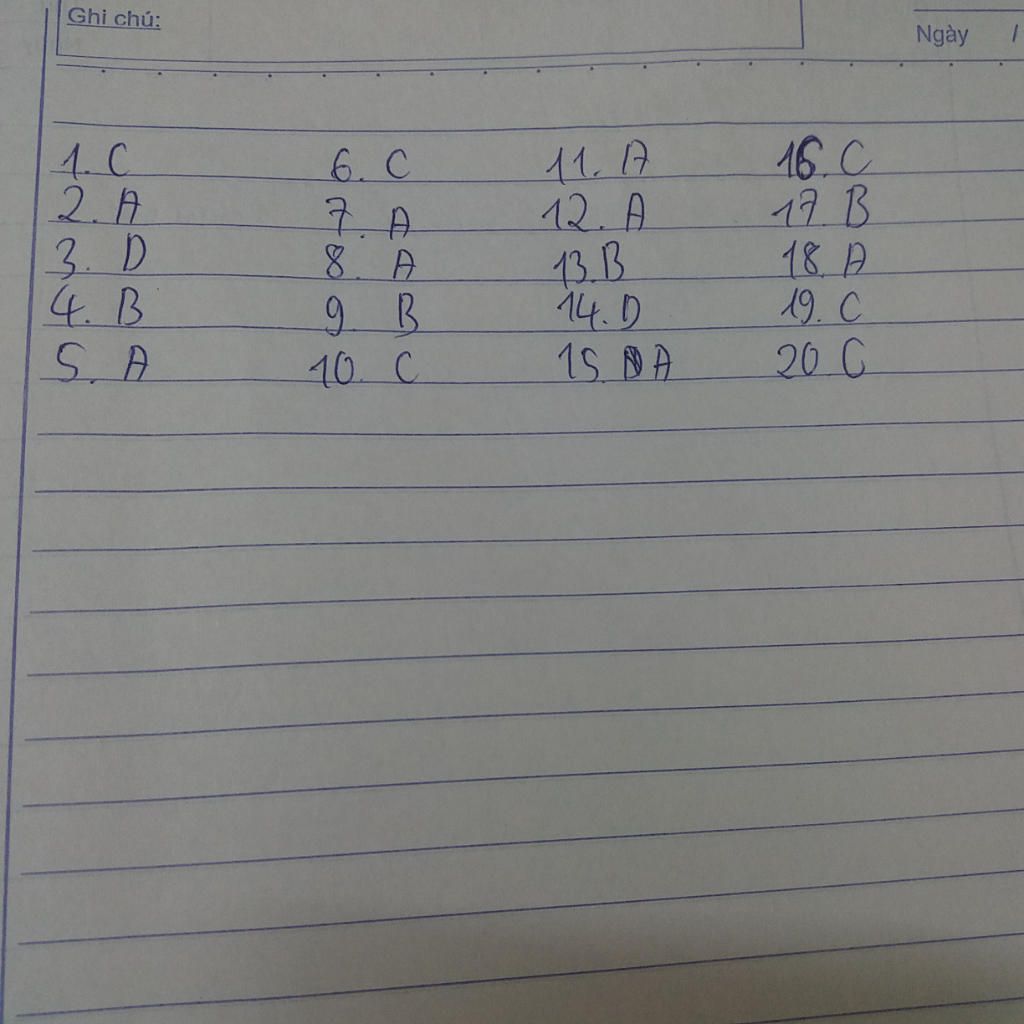 Ghi chú:
Ngày /
1. C 6. C 11. A 16. C
2. A 7. A 12. A 17. B
3. D 8. A 13. B 18. A
4. B 9. B 14. D 19. C
5. A 10. C 15. A 20 C